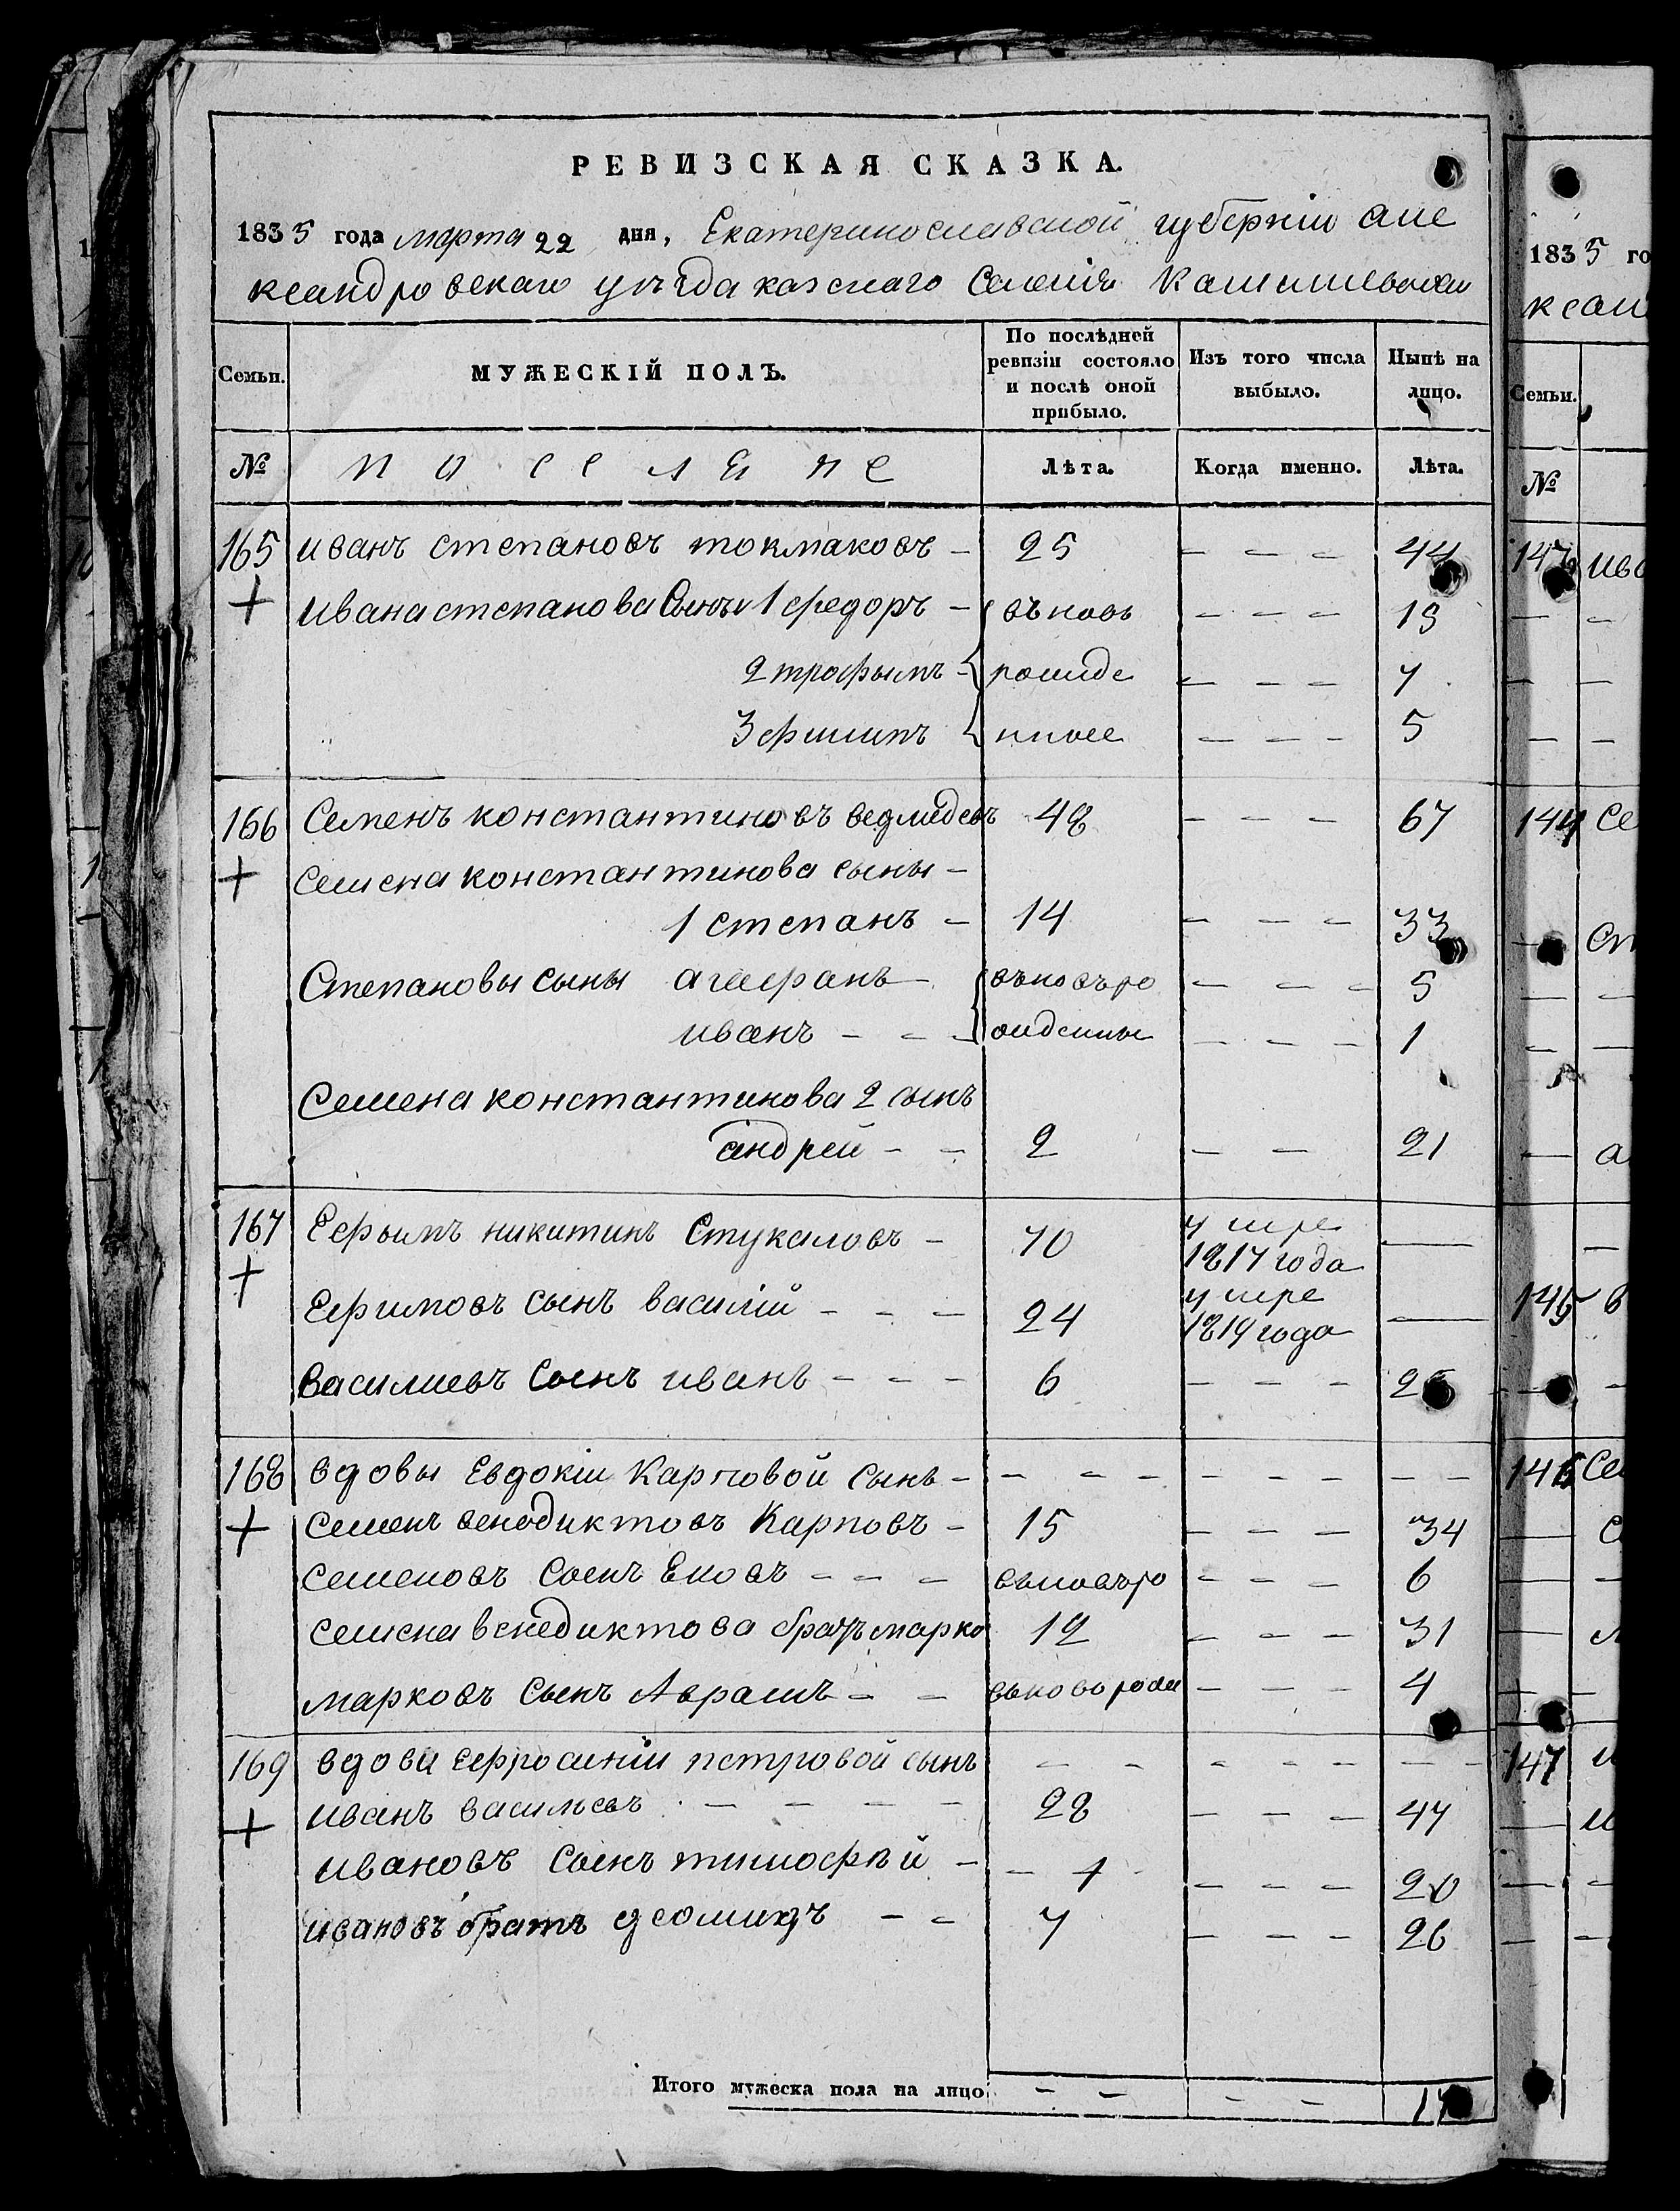 РЕВИЗСКАЯ СКАЗКА.
1835 года марта 22 дня, Екатеринославской губерніи але
ксандровскаго уѣзда казенаго Селенія
Семьи. МУЖЕСКІЙ ПОЛЪ. По послѣдней ревизіи состояло и послѣ оной прибыло. Изъ того числа выбыло. Нынѣ на лицо.
№ поселяне Лѣта. Когда именно. Лѣта.
165 иванъ степановъ токмаковъ - 25 - - - 44
+ ивана степанова Сыны 1 федоръ - въновь - - - 19
2 трофымъ - рожде - - - 7
3 филипъ нные - - - 5
166 Семенъ константиновъ ведмедевъ 48 - - - 67
+ семена константинова сыны -
1 степанъ - 14 - - - 33
Степановы сыны агафанъ - въновъро - - - 5
иванъ - - - жденные - - - 1
Семена константинова 2 сынъ
андрей - - 2 - - 21
167 Ефымъ никитинъ Стукаловъ - 70 умре 1817 года —
+ Ефимовъ сынъ василій - - - 24 умре 1819 года —
василиевъ сынъ иванъ - - - 6 - - - 25
168 вдовы Евдокіи Карповой сынъ - - - - - - - - -
+ семенъ венедиктовъ Карповъ - 15 - - - 34
семеновъ сынъ - - - въновъро - - - 6
семена венедиктова братъ марко 12 - - - 31
марковъ сынъ Аврамъ - - въноворож - - - 4
169 вдовы ефросиніи петровой сынъ - - - - - - -
+ иванъ васильевъ - - - - 28 - - - 47
ивановъ сынъ тимофѣй - - 1 - - - 20
ивановъ братъ - - 7 - - - 26
Итого мужеска пола на лицо - - - - 17
1835 го
ксан
Семьи.
№
143 ива
144 се
ст
а
145 в
146 Се
с
147 и
и